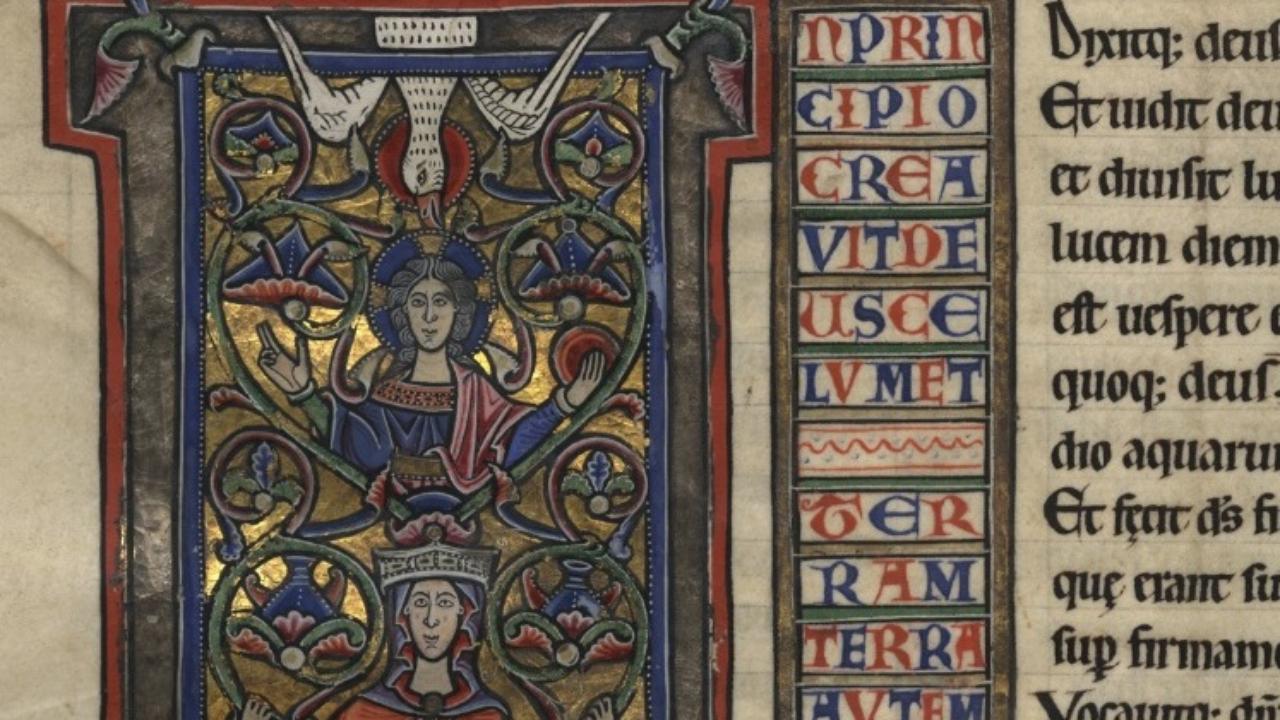 NPRIN
CIPIO
CREA
VITDE
USCE
LVMET
TER
RAM
TERRA
AVTEM
Dixitq; deus
Et uidit deu
et diuisit lu
lucem diem
est uespere
quoq; deus
dio aquaru
Et fecit d̄s fi
quę erant su
sup̲ firmame
Vocauitq;